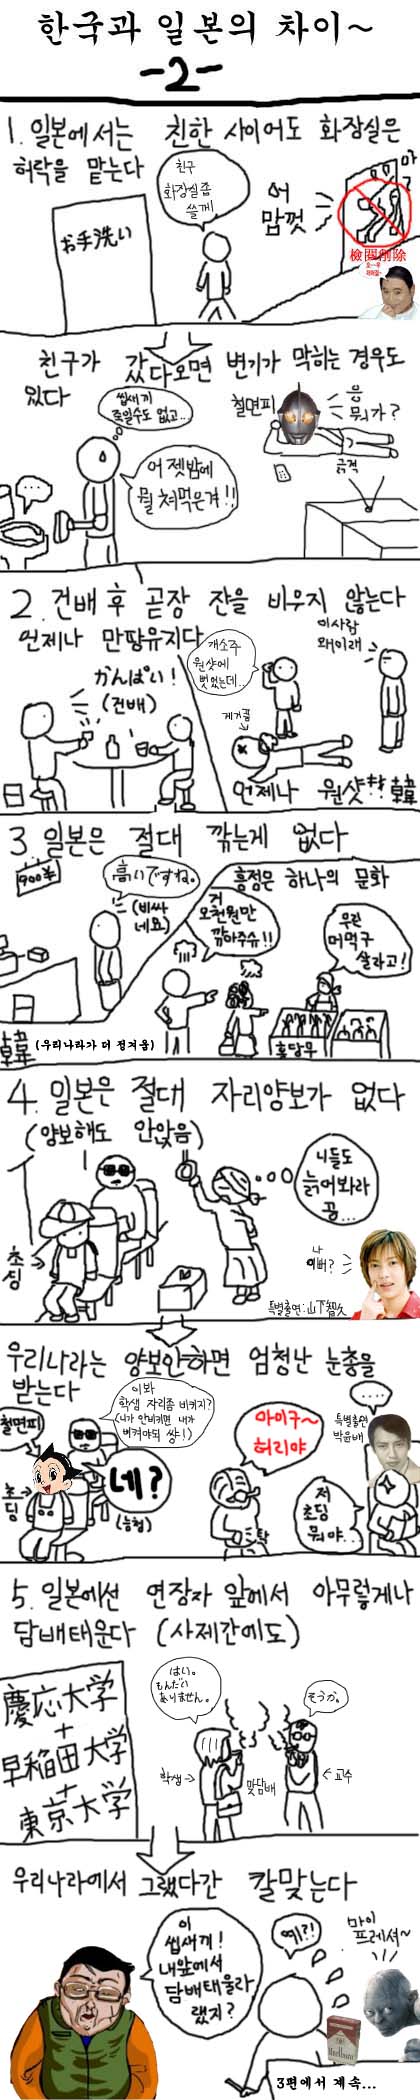 한국과 일본의 차이~
-2-
1. 일본에서는 친한 사이어도 화장실은
허락을 맡는다
친구
화장실좀
쓸께
어
맘껏
お手洗い
檢閱削除
친구가 갔다오면 변기가 막히는 경우도
있다
씹새끼
죽일수도 없고...
철면피
응
뭐가?
...
어젯밤에
뭘 쳐먹은겨!!
긁적
2. 건배 후 곧장 잔을 비우지 않는다
언제나 만땅유지다
이사람
왜이래
개소주
원샷에
뻣었는데...
かんぱい!
(건배)
게거품
언제나 원샷!! 韓
3. 일본은 절대 깎는게 없다
900¥
高いですね。
(비싸
네요)
흥정은 하나의 문화
거
오천원만
깎아주슈!!
우린
머먹구
살라고!
홍당무
韓 (우리나라가 더 정겨움)
4. 일본은 절대 자리양보가 없다
(양보해도 안앉음)
니들도
늙어봐라
끙...
초딩
나
이뻐?
특별출연:山下智久
우리나라는 양보안하면 엄청난 눈총을
받는다
이봐
학생 자리좀 비키지?
(니가 안비키면 내가
비켜야되 썅!)
....
철면피
특별출연
박윤배
아이구~
허리야
네?
(능청)
초딩
탁
저
초딩
뭐야...
5. 일본에선 연장자 앞에서 아무렇게나
담배태운다 (사제간에도)
慶応大学
+
早稲田大学
+
東京大学
はい。
もんだい
ありません。
そうか。
학생→
맞담배
←교수
우리나라에서 그랬다간 칼맞는다
이
씹새끼!
내앞에서
담배태울라
랬지?
예?!
마이
프레셔~
Marlboro
3편에서 계속...